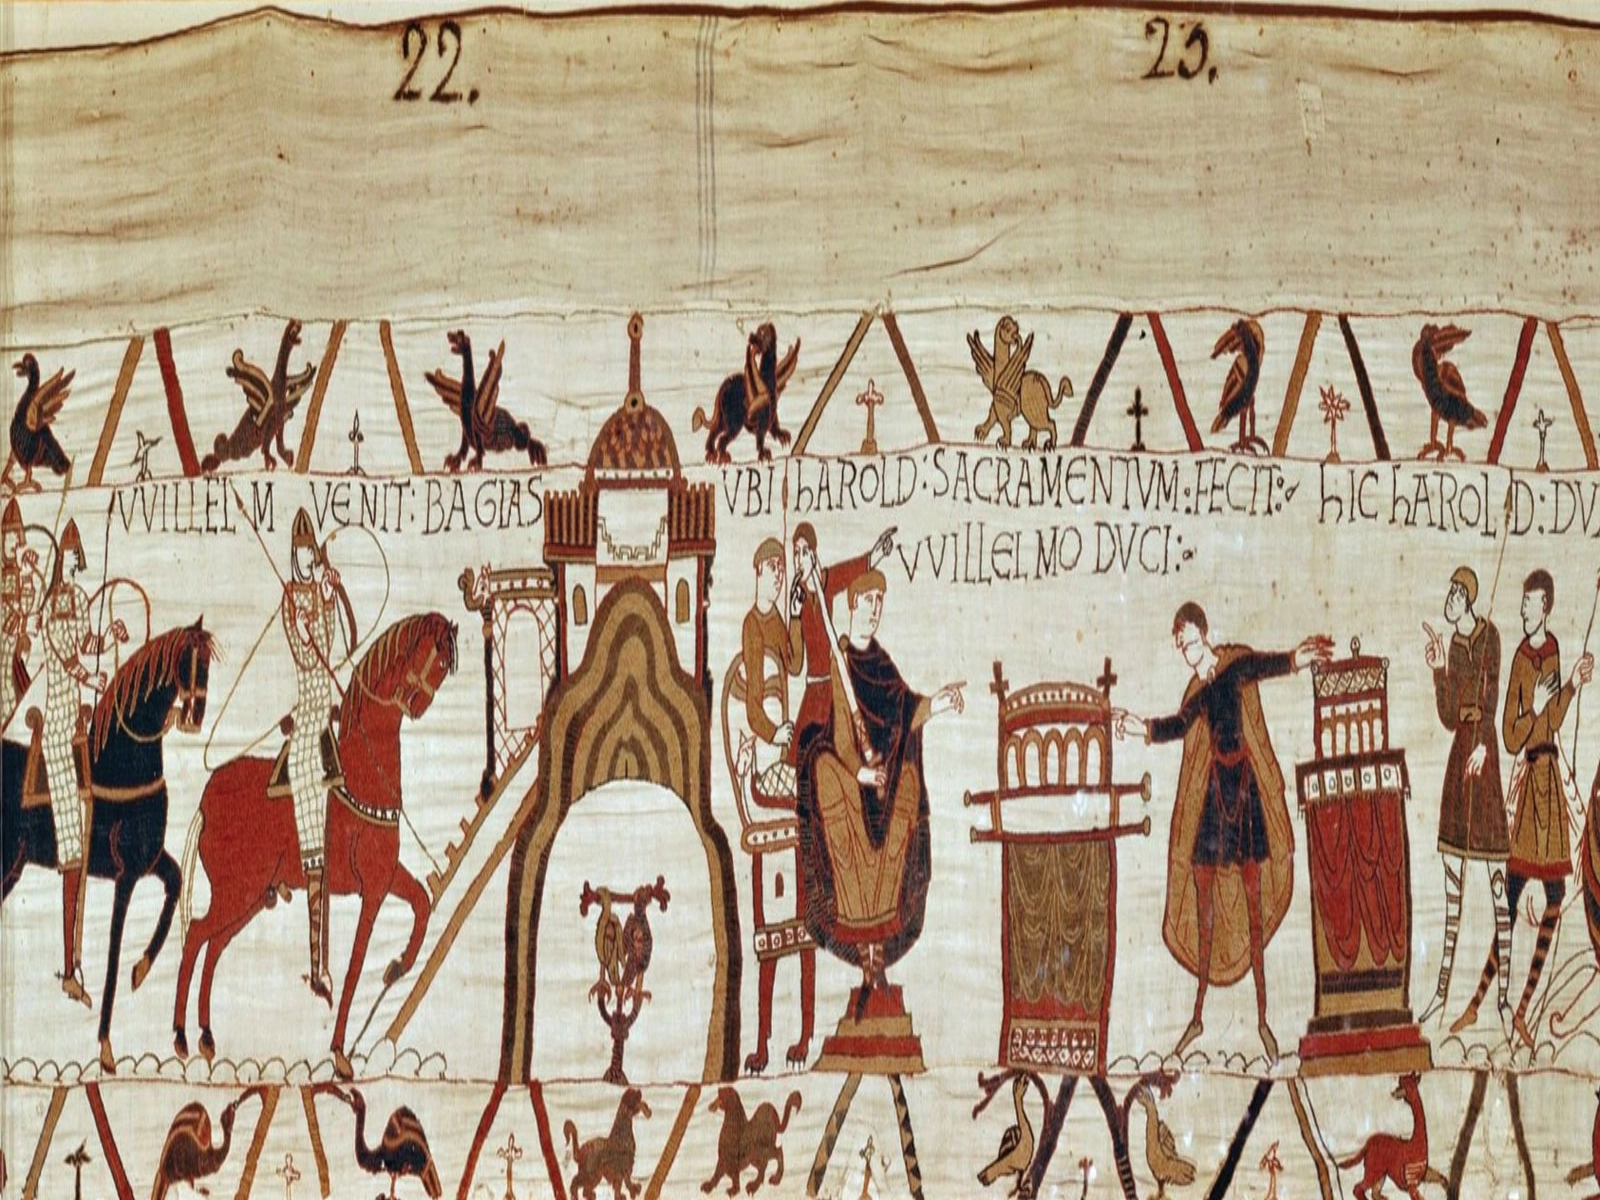 22.
23.
VVILLELM VENIT: BAGIAS
VBI hAROLD: SACRAMENTVM: FECIT:
VVILLELMO DVCI:
hIC hAROLD: DV